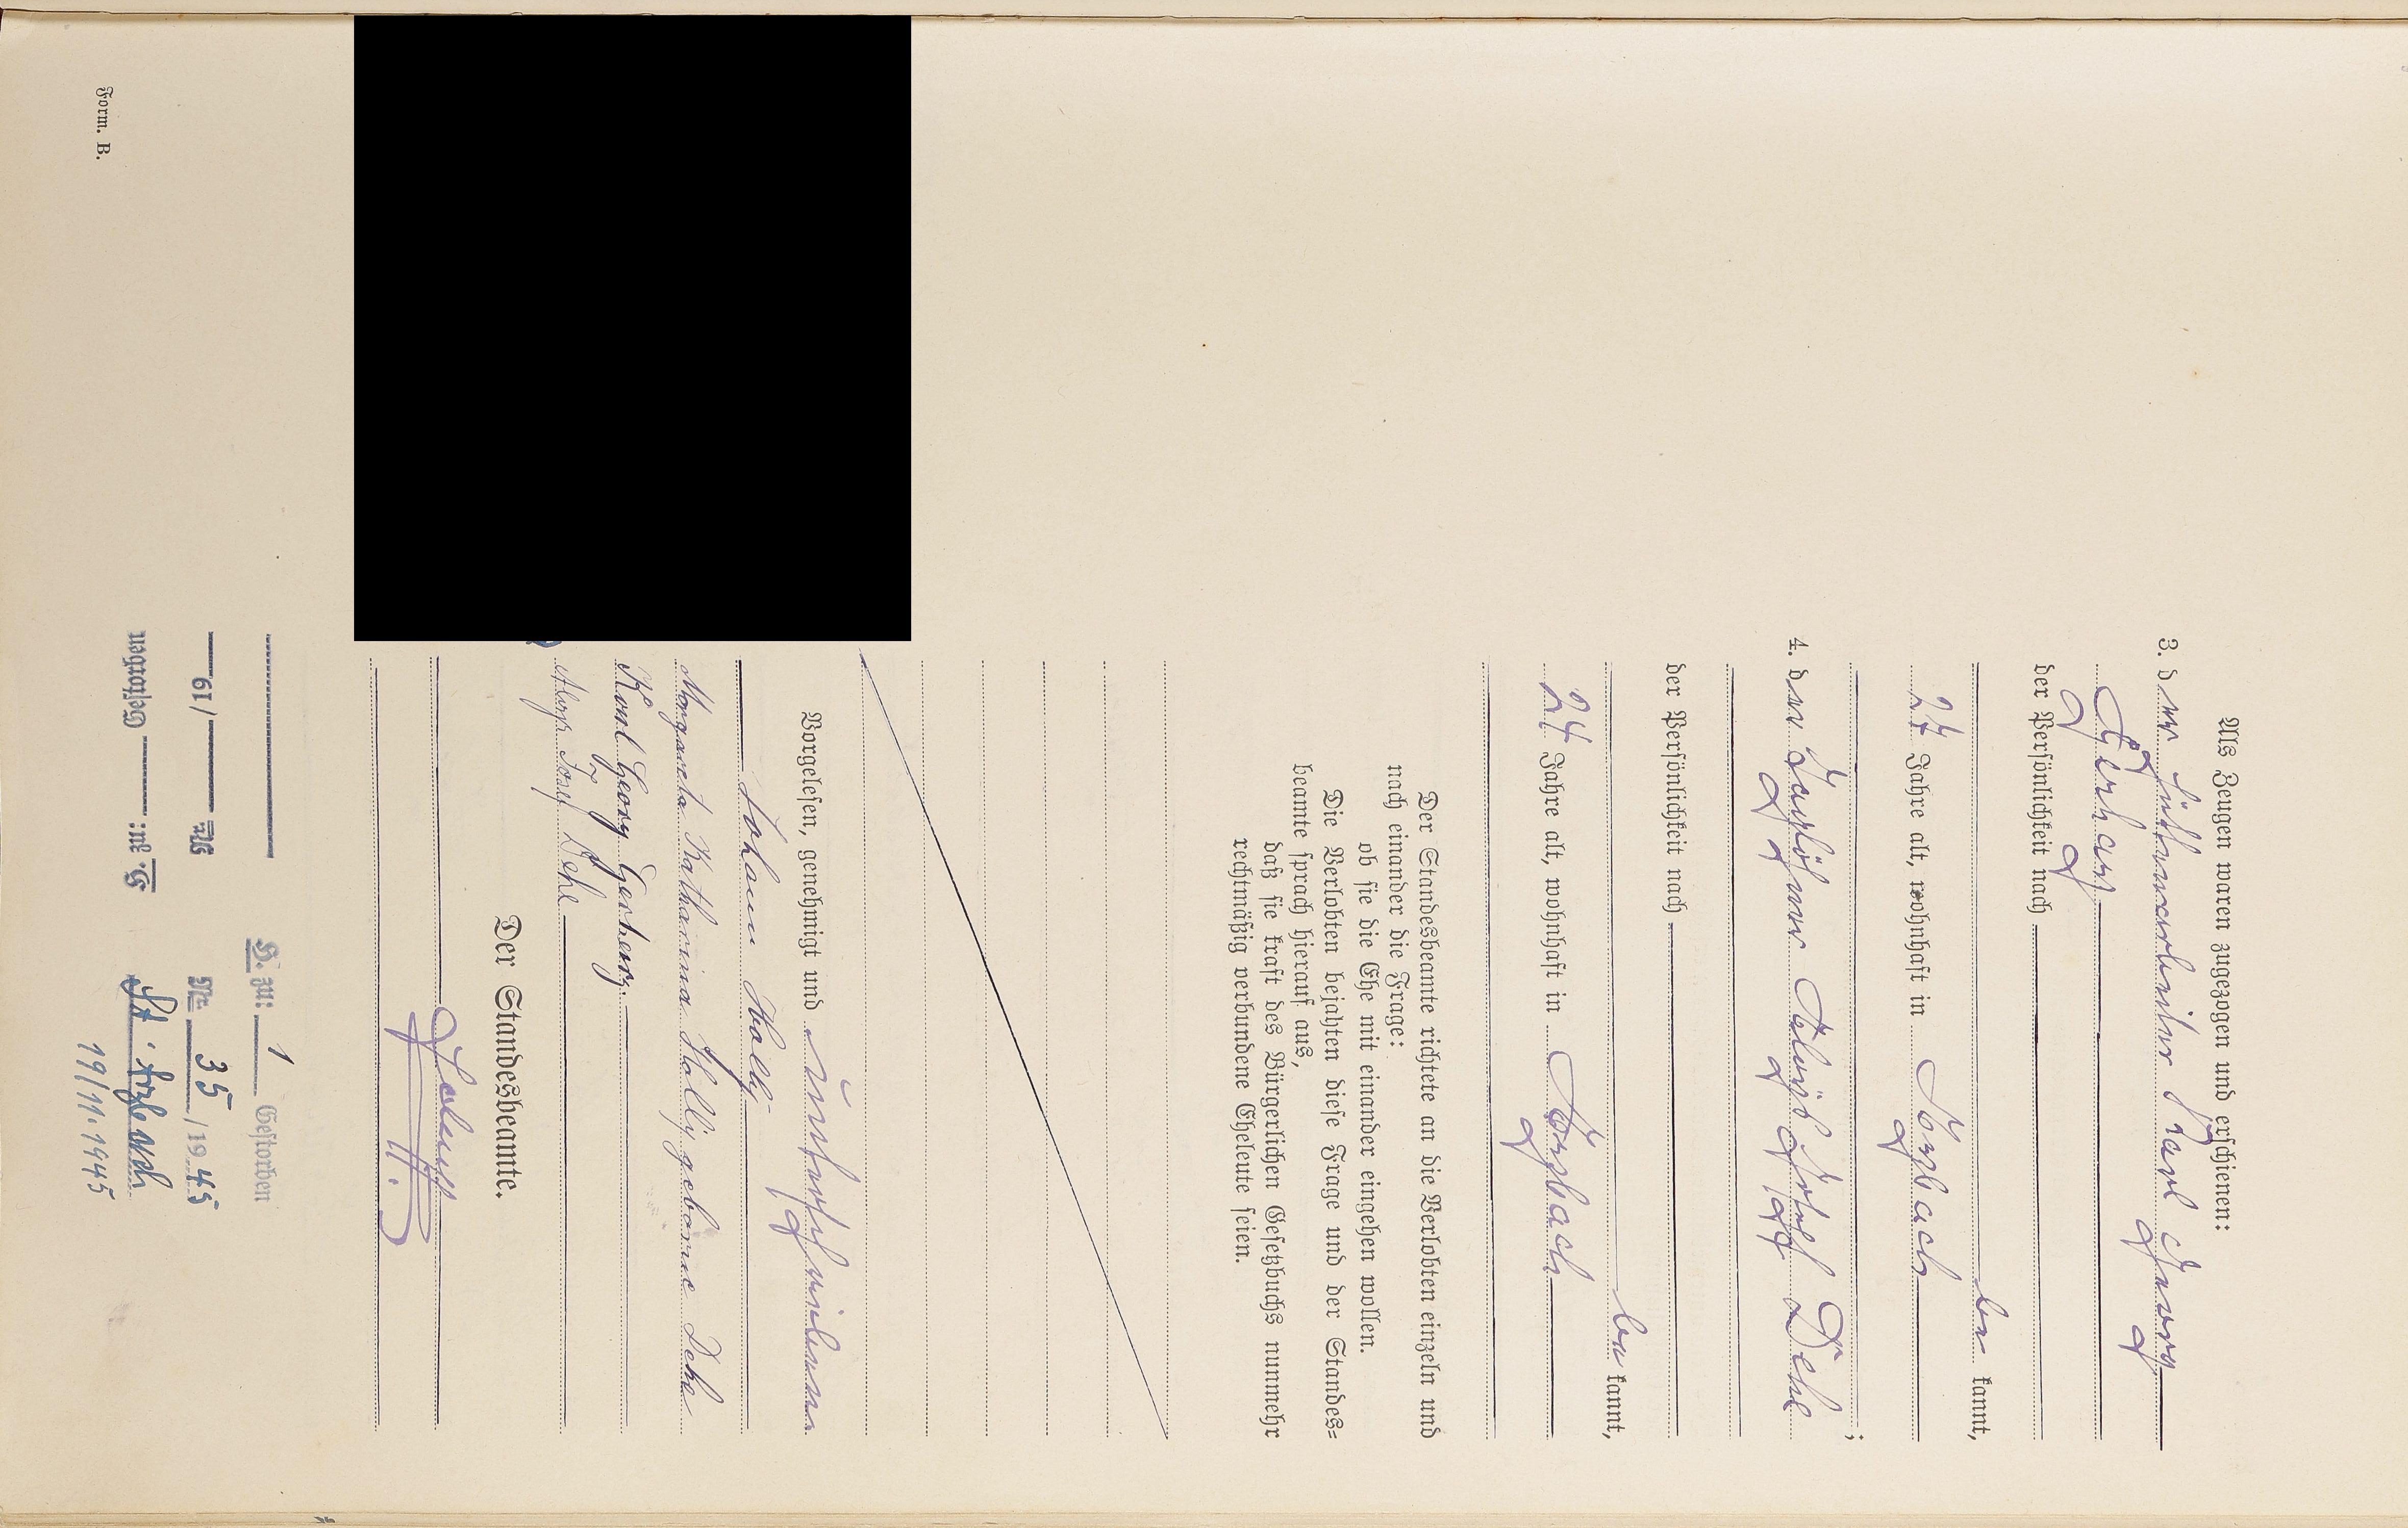 Als Zeugen waren zugezogen und erschienen:
3. der Hüttenarbeiter Karl Georg
Gerharz
der Persönlichkeit nach
be kannt,
24 Jahre alt, wohnhaft in Sörgbach
4. der
Dehe
;
der Persönlichkeit nach
be kannt,
24 Jahre alt, wohnhaft in
Der Standesbeamte richtete an die Verlobten einzeln und
nach einander die Frage:
ob sie die Ehe mit einander eingehen wollen.
Die Verlobten bejahten diese Frage und der Standes=
beamte sprach hierauf aus,
daß sie kraft des Bürgerlichen Gesetzbuchs nunmehr
rechtmäßig verbundene Eheleute seien.
Vorgelesen, genehmigt und unterschrieben
Johann Kolly
Margareta Katharina Kolly geborne Dehe
Karl Georg Gerharz.
Dehe
Der Standesbeamte.
Form. B.
G. zu: 1 Gestorben
№ /19 Nr. 35 /19 45
G. zu: Gestorben
19/11.1945